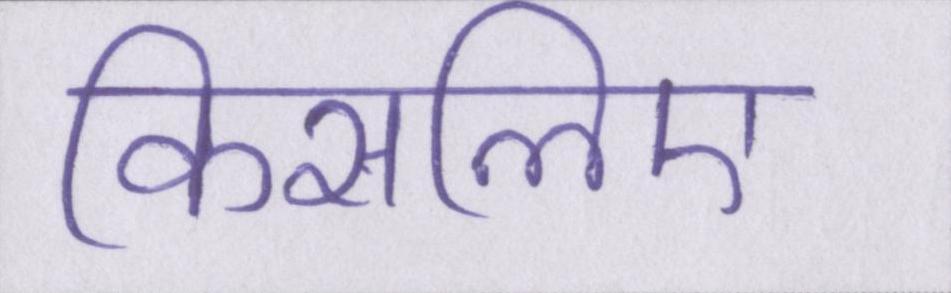 किसलिए